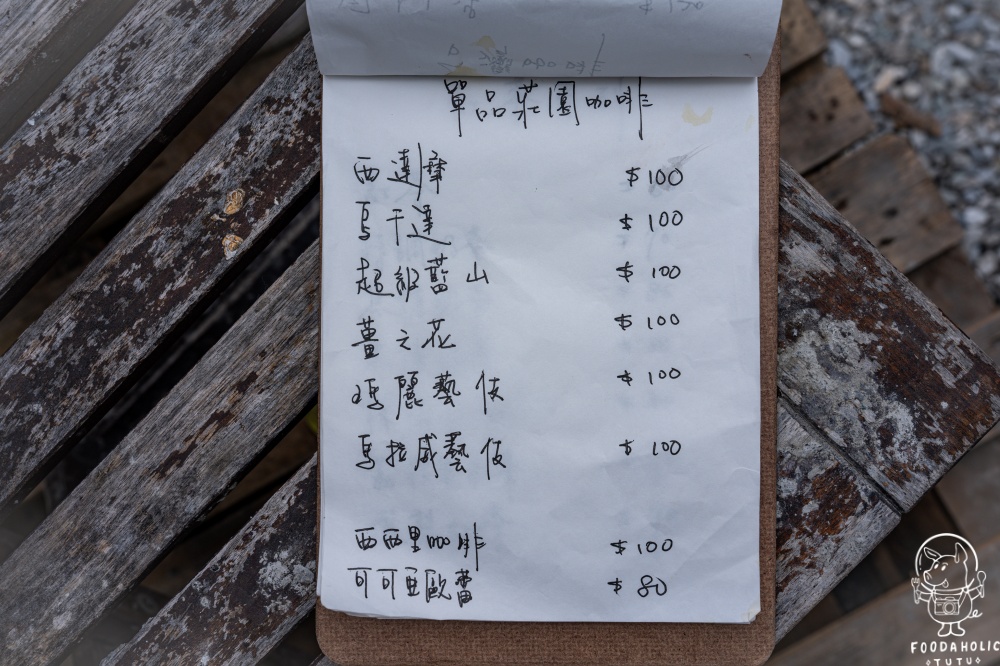 單品莊園咖啡
西達摩 $100
烏干達 $100
超級藍山 $100
薑之花 $100
瑪麗藝伎 $100
馬拉威藝伎 $100
西西里咖啡 $100
可可亞歐蕾 $80
FOODAHOLIC
TUTU